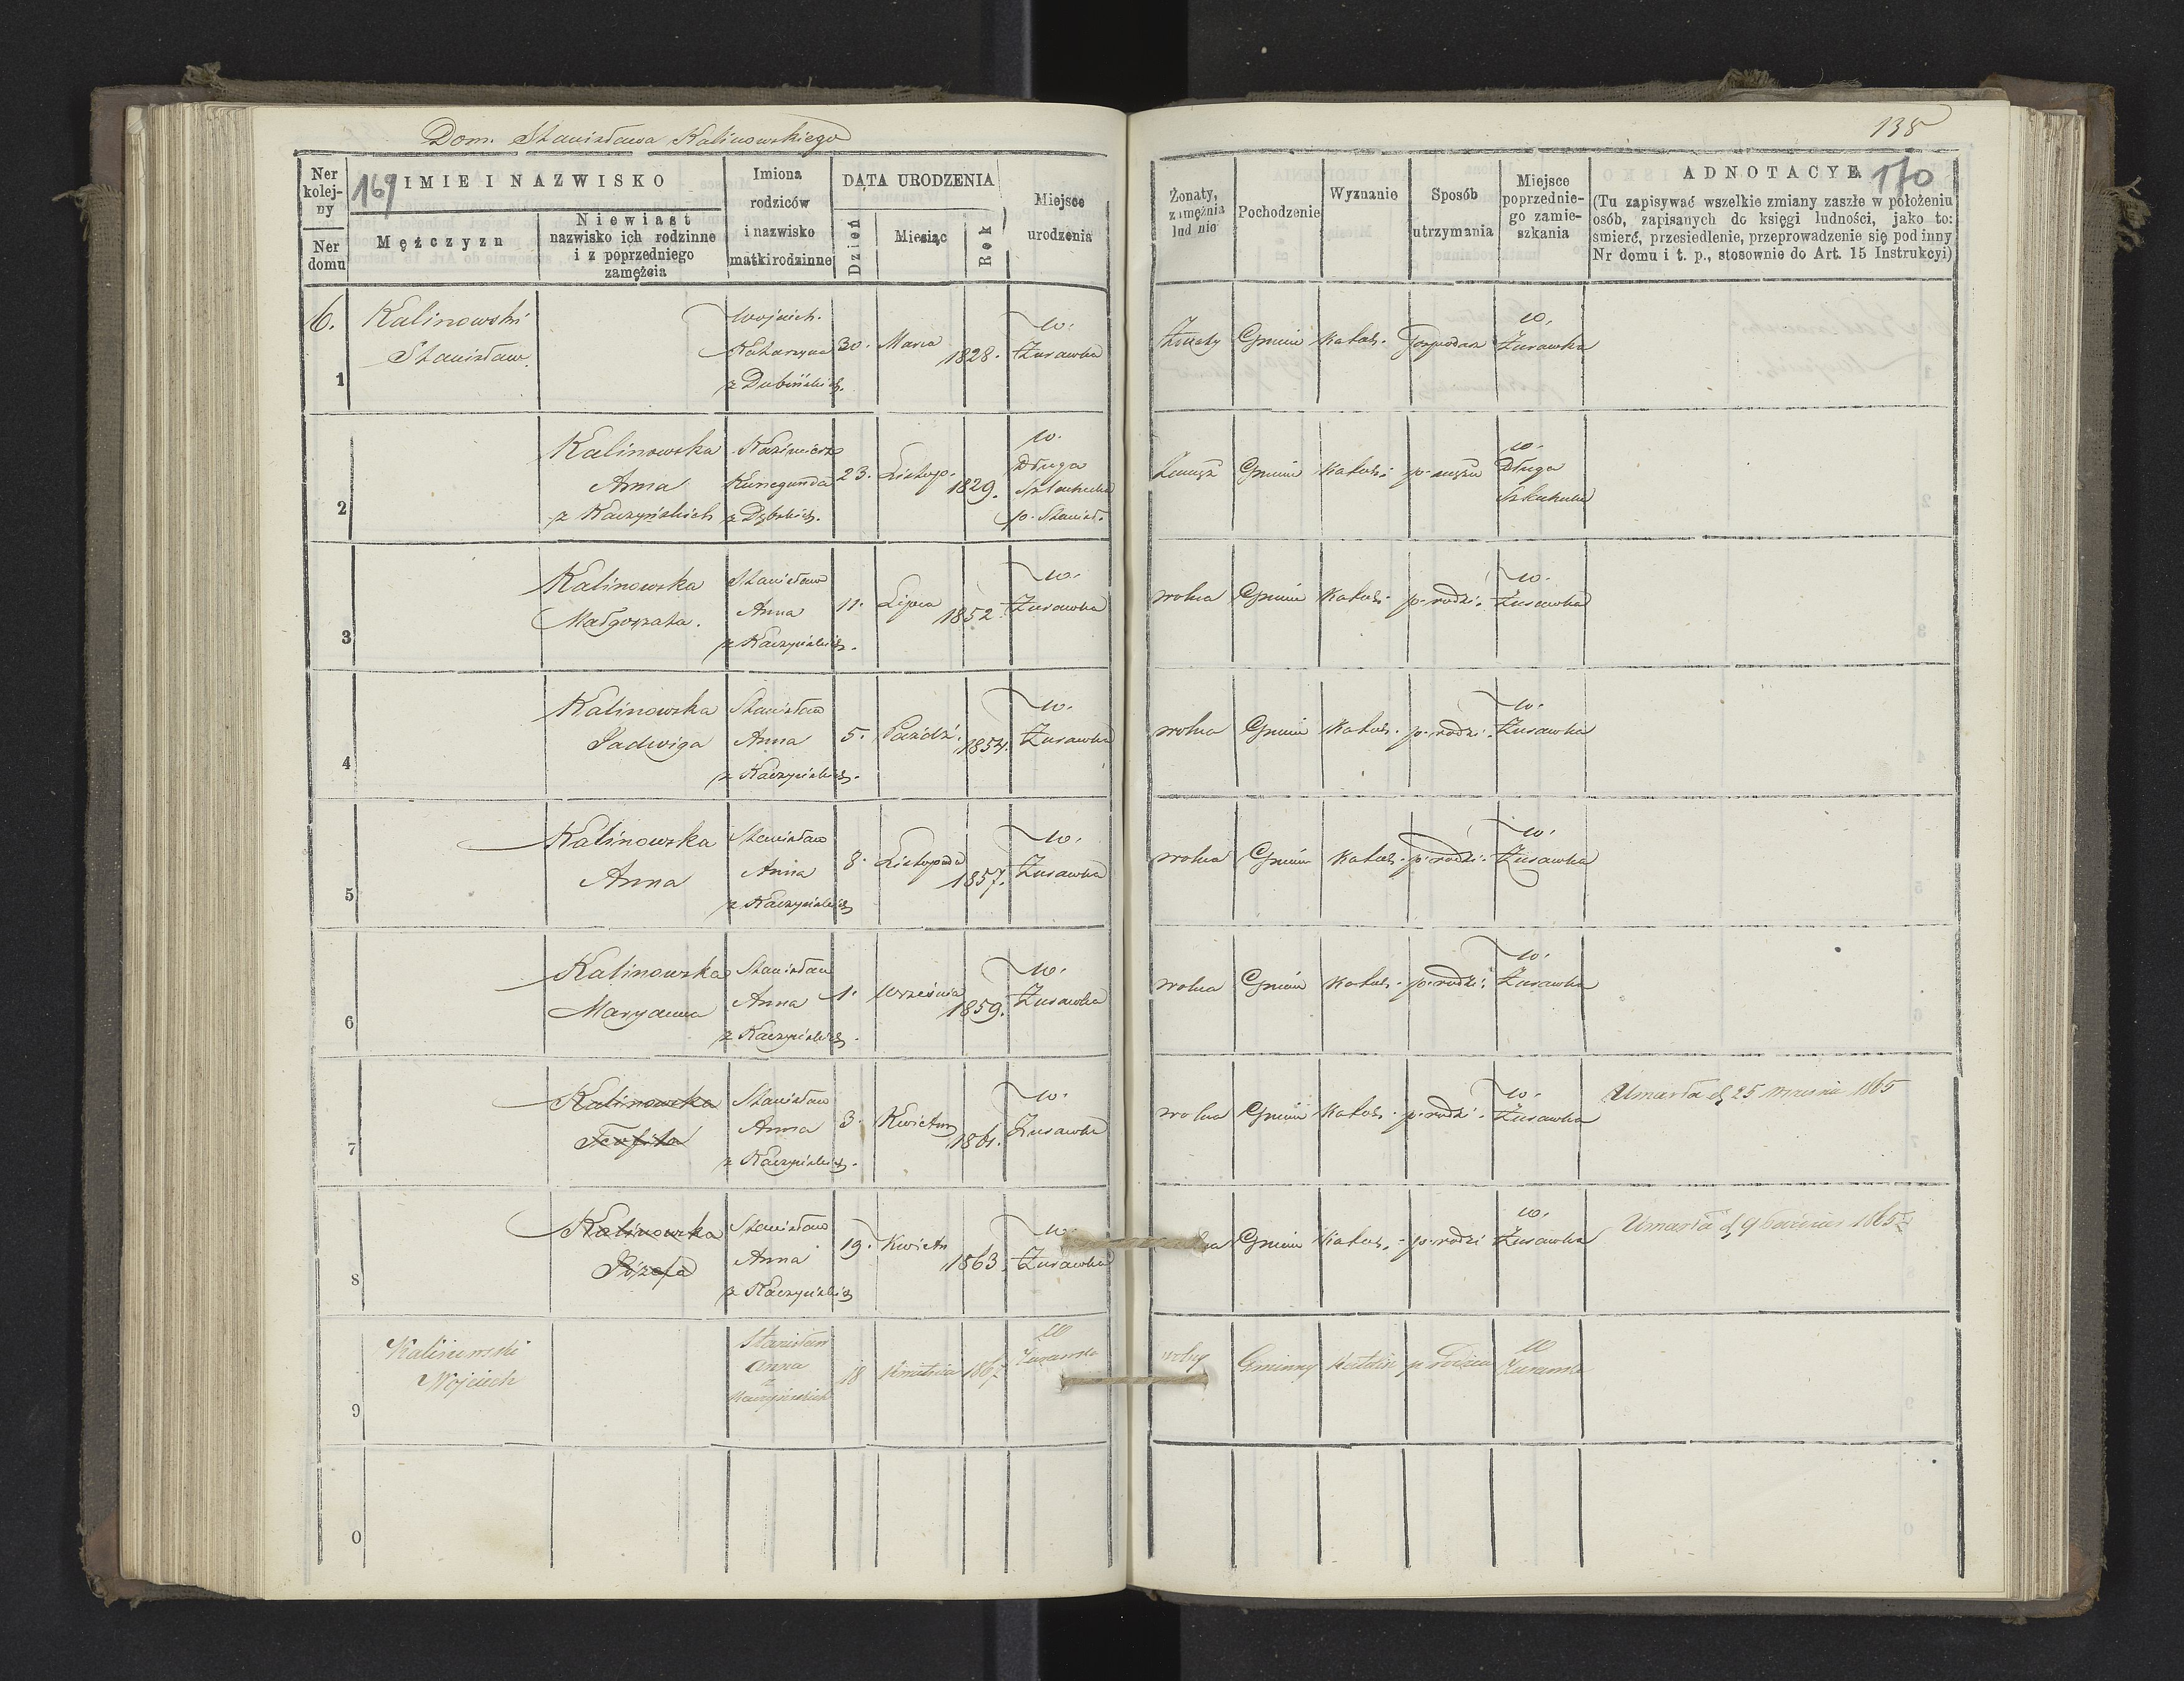 Dom. Stanisława Kalinowskiego
138
169
170
Ner kolejny
Ner domu
IMIE I NAZWISKO
Mężczyzn
Niewiast
nazwisko ich rodzinne
i z poprzedniego
zamężcia
Imiona
rodziców
i nazwisko
matki rodzinne
DATA URODZENIA
Dzień
Miesiąc
Rok
Miejsce
urodzenia
Żonaty,
zamężnia
lud nie
Pochodzenie
Wyznanie
Sposób
utrzymania
Miejsce
poprzednie-
go zamie-
szkania
ADNOTACYE
(Tu zapisywać wszelkie zmiany zaszłe w położeniu
osób, zapisanych do księgi ludności, jako to:
śmierć, przesiedlenie, przeprowadzenie się pod inny
Nr domu i t. p., stosownie do Art. 15 Instrukcyi)
6.
1
Kalinowski
Stanisław.
Wojciech.
Katarzyna
z Dubińskich.
30. Marca 1828.
w.
Żurawka
Żonaty Gminn Katol. Gospodarz
w.
Żurawka
2
Kalinowska
Anna
z Kaczyńskich
Kaźmierz
Kunegunda
z Dębskich.
23. Listop. 1829.
w.
Długa
Szlachecka
p. Stanisł.
Zamęż Gminn Katol. p. mężu
w.
Długa
Szlachecka
3
Kalinowska
Małgorzata.
Stanisław
Anna
z Kaczyńskich.
11. Lipca 1852
w.
Żurawka
wolna Gminn Katol. p. rodzi.
w.
Żurawka
4
Kalinowska
Jadwiga
Stanisław
Anna
z Kaczyńskich.
5. Paźdź. 1854.
w.
Żurawka
wolna Gminn Katol. p. rodzi.
w.
Żurawka
5
Kalinowska
Anna
Stanisław
Anna
z Kaczyńskich
8. Listopada 1857.
w.
Żurawka
wolna Gminn Katol. p. rodzi.
w.
Żurawka
6
Kalinowska
Maryanna
Stanisław
Anna
z Kaczyńskich.
1. Września 1859.
w.
Żurawka
wolna Gminn Katol. p. rodzi.
w.
Żurawka
7
Kalinowska
Teofila
Stanisław
Anna
z Kaczyńskich.
3. Kwietnia 1861.
w.
Żurawka
wolna Gminn Katol. p. rodzi.
w.
Żurawka
Umarła d 25 1865
8
Kalinowska
Józefa
Stanisław
Anna
z Kaczyńskich
19. Kwietn 1863.
w.
Żurawka
Gminn Katol. p. rodzi
w.
Żurawka
Umarła d 9 1865
9
Kalinowski
Wojciech
Stanisław
Anna
z
Kaczyńskich
18 Kwietnia 1867
w
Żurawka
wolny Gminny Katolik p Rodzica
w
Żurawka
0